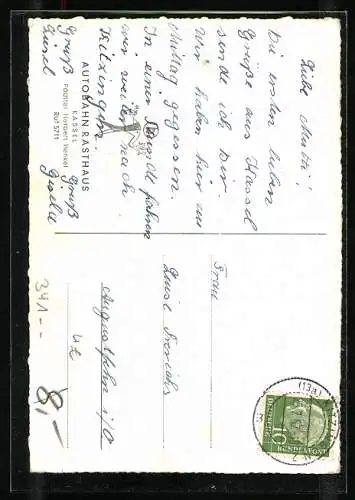 Liebe Mutti!
Die ersten lieben
Grüße aus Kassel
sende ich Dir.
Wir haben hier zu
Mittag gegessen.
In einer Stunde fahren
wir weiter nach
Kitzingen.
Gruß
Gruß
Gisela
AUTOBAHN RASTHAUS
KASSEL
Pächter Herbert Henkel
Ruf 5711
Frau
Luise Frerichs
Augustfehn i/O
(13a)
10
DEUTSCHE
BUNDESPOST
341--
8,-